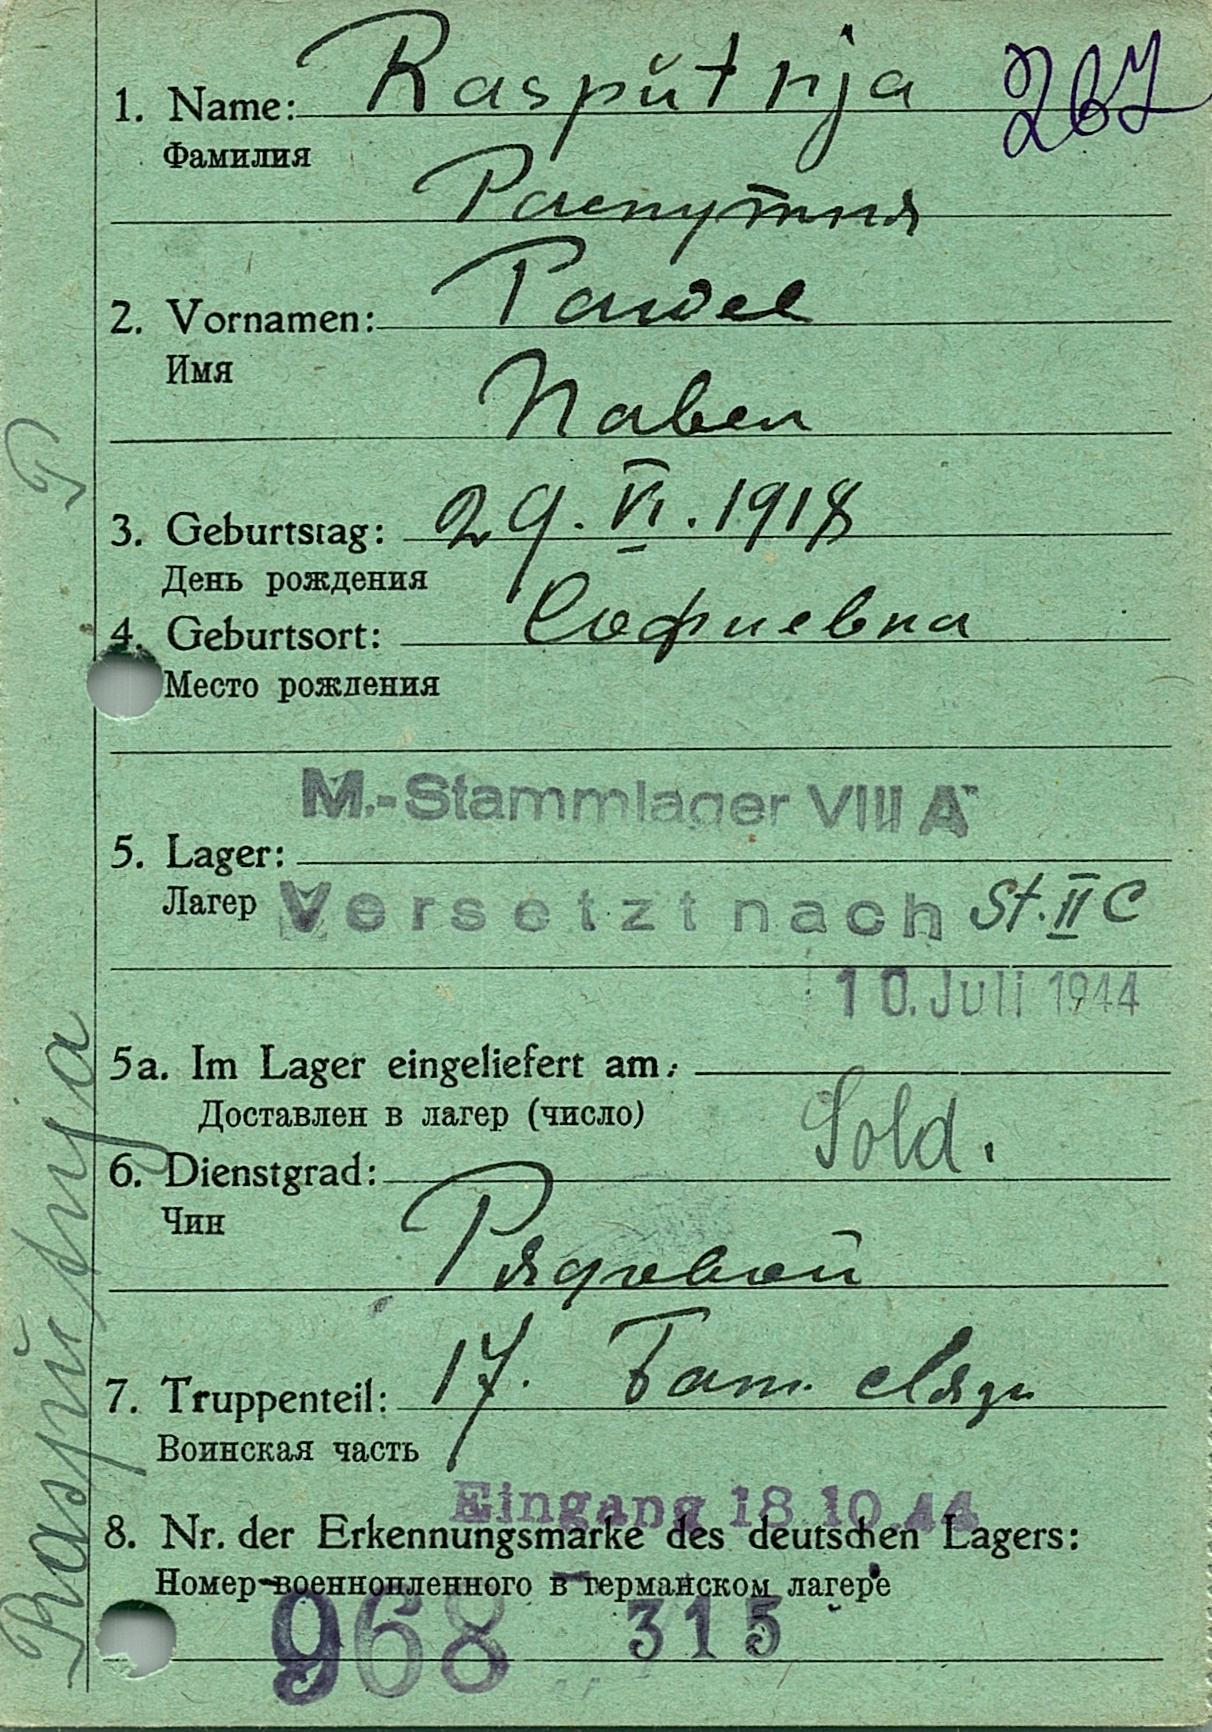 1. Name: Raspŭtnja 267
Фамилия
Распутня
2. Vornamen: Pawel
Имя
Павел
3. Geburtstag: 29. VI. 1918
День рождения
4. Geburtsort: Софиевка
Место рождения
M.-Stammlager VIII A
5. Lager:
Лагер Versetzt nach St. II C
10. Juli 1944
5a. Im Lager eingeliefert am:
Доставлен в лагер (число)
Sold.
6. Dienstgrad:
Чин
Рядовой
7. Truppenteil: 17. Бат. связи
Воинская часть
Eingang 18.10.44
8. Nr. der Erkennungsmarke des deutschen Lagers:
Номер военнопленного в германском лагере
968 315
Raspŭtnja P